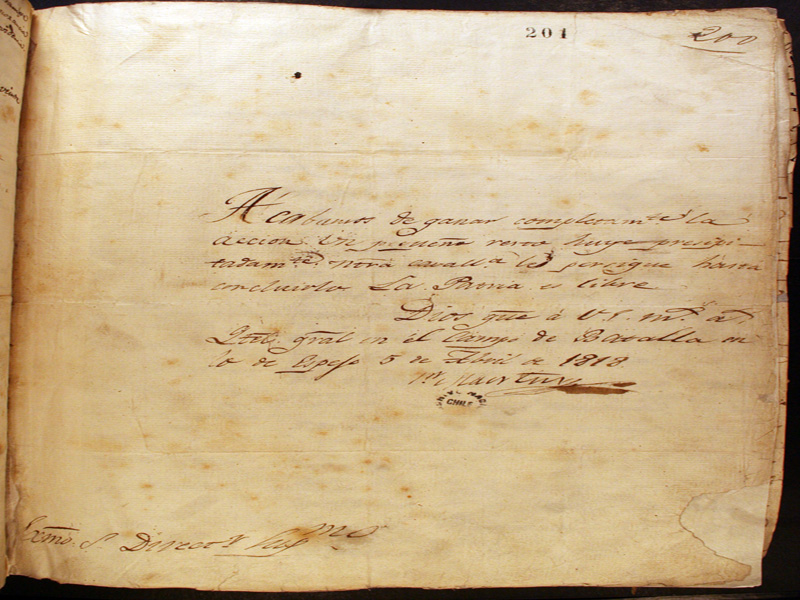 201
200
Acabamos de ganar completamte. la
accion. Un pequeño resto huye presipi-
tadamte. Ntra cavalla. lo persigue hasta
concluirlo. La Patria es libre
Dios gue. á V.E. ms. as.
Qtel. gral en el Campo de Batalla en
lo de Espejo 5 de Abril de 1818.
CHILE
Exmo. Sr. Director